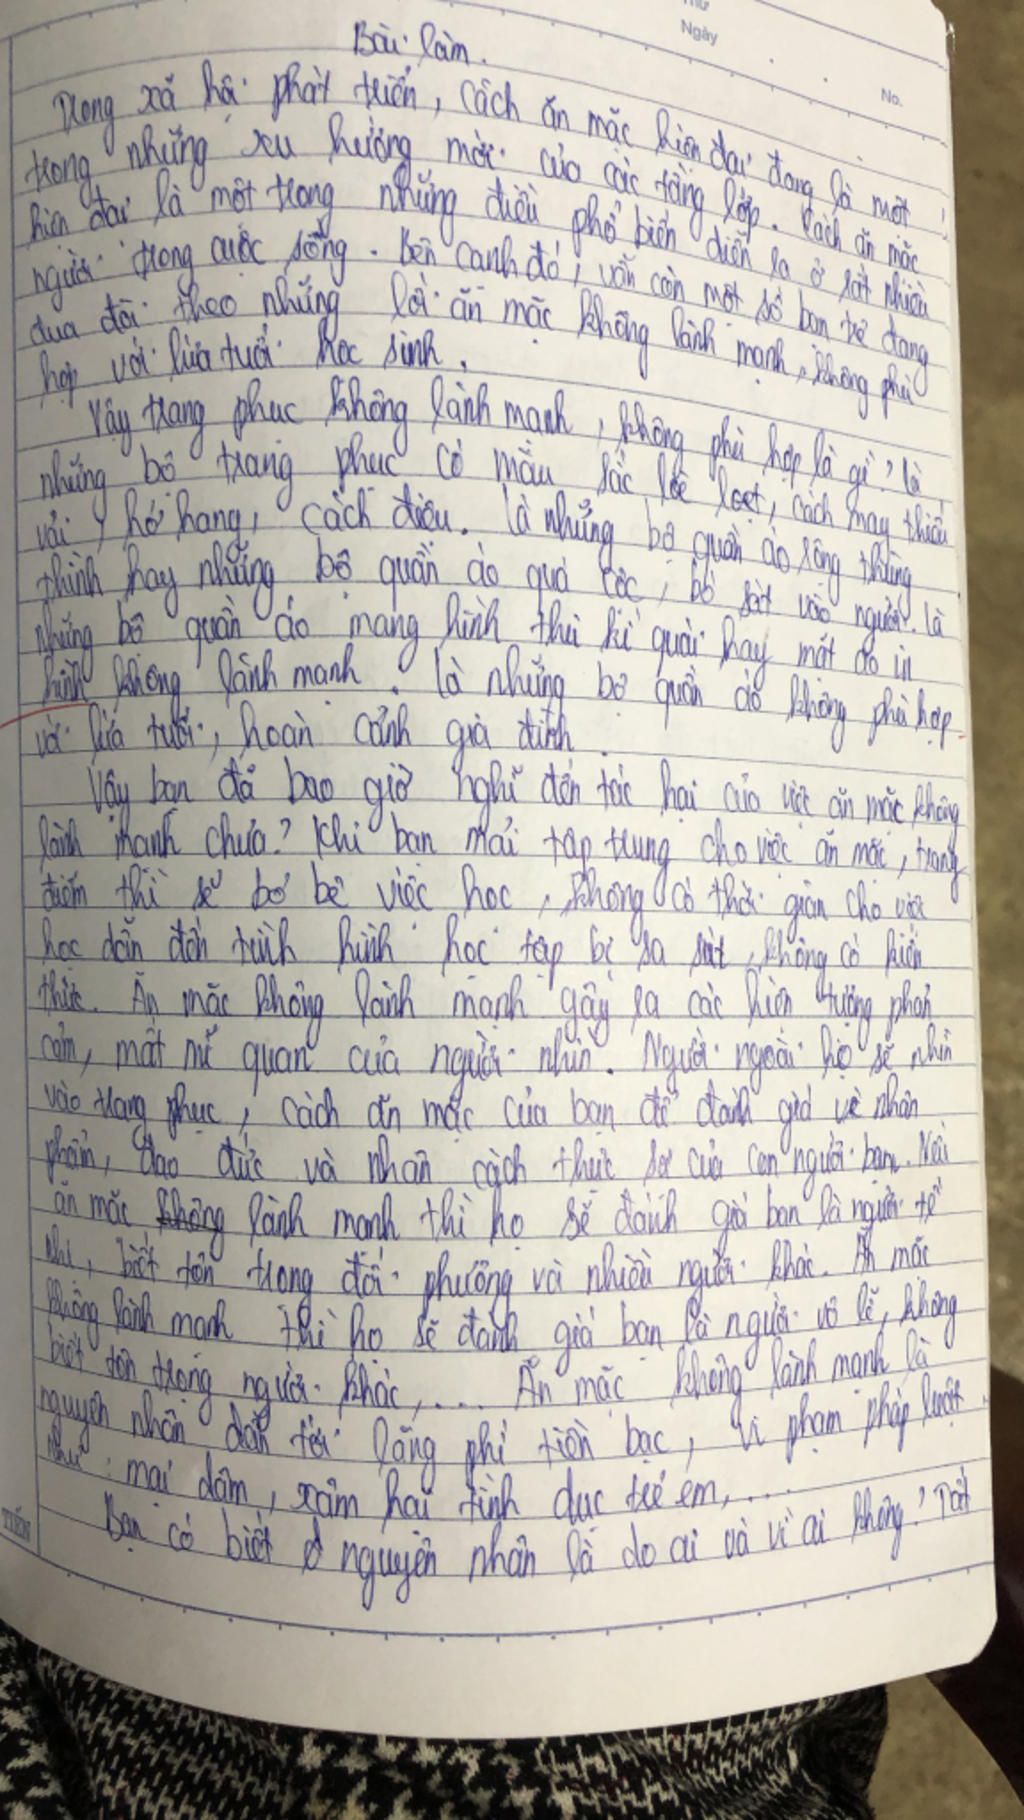 Thứ
Ngày
No.
Bài làm.
Trong xã hội phát triển, cách ăn mặc hiện đại đang là một
trong những xu hướng mới của các tầng lớp. Cách ăn mặc
hiện đại là một trong những điều phổ biến diễn ra ở rất nhiều
người trong cuộc sống. Bên cạnh đó, vẫn còn một số bạn trẻ đang
đua đòi theo những lối ăn mặc không lành mạnh, không phù
hợp với lứa tuổi học sinh.
Vậy trang phục không lành mạnh, không phù hợp là gì? là
những bộ trang phục có mầu sắc lòe loẹt, cách may thiếu
vải, hở hang, cách điệu. Là những bộ quần áo rộng thùng
thình hay những bộ quần áo quá cộc, bó sát vào người. là
những bộ quần áo mang hình thù kì quái hay mặt áo in
hình không lành mạnh. Là những bộ quần áo không phù hợp
với lứa tuổi, hoàn cảnh gia đình.
Vậy bạn đã bao giờ nghĩ đến tác hại của việc ăn mặc không
lành mạnh chưa? Khi bạn mải tập trung cho việc ăn mặc, trang
điểm thì sẽ bỏ bê việc học, không có thời gian cho việc
học dẫn đến tình hình học tập bị sa sút, không có kiến
thức. Ăn mặc không lành mạnh gây ra các hiện tượng phản
cảm, mất mĩ quan của người nhìn. Người ngoài họ sẽ nhìn
vào trang phục, cách ăn mặc của bạn để đánh giá về nhân
phẩm, đạo đức và nhân cách thực sự của con người bạn. Nếu
ăn mặc lành mạnh thì họ sẽ đánh giá bạn là người tế
nhị, biết tôn trọng đối phương và nhiều người khác. Ăn mặc
không lành mạnh thì họ sẽ đánh giá bạn là người vô lễ, không
biết tôn trọng người khác,.... Ăn mặc không lành mạnh là
nguyên nhân dẫn tới lãng phí tiền bạc, vi phạm pháp luật
như: mại dâm, xâm hại tình dục trẻ em,....
Bạn có biết nguyên nhân là do ai và vì ai không? Tất
TIẾN